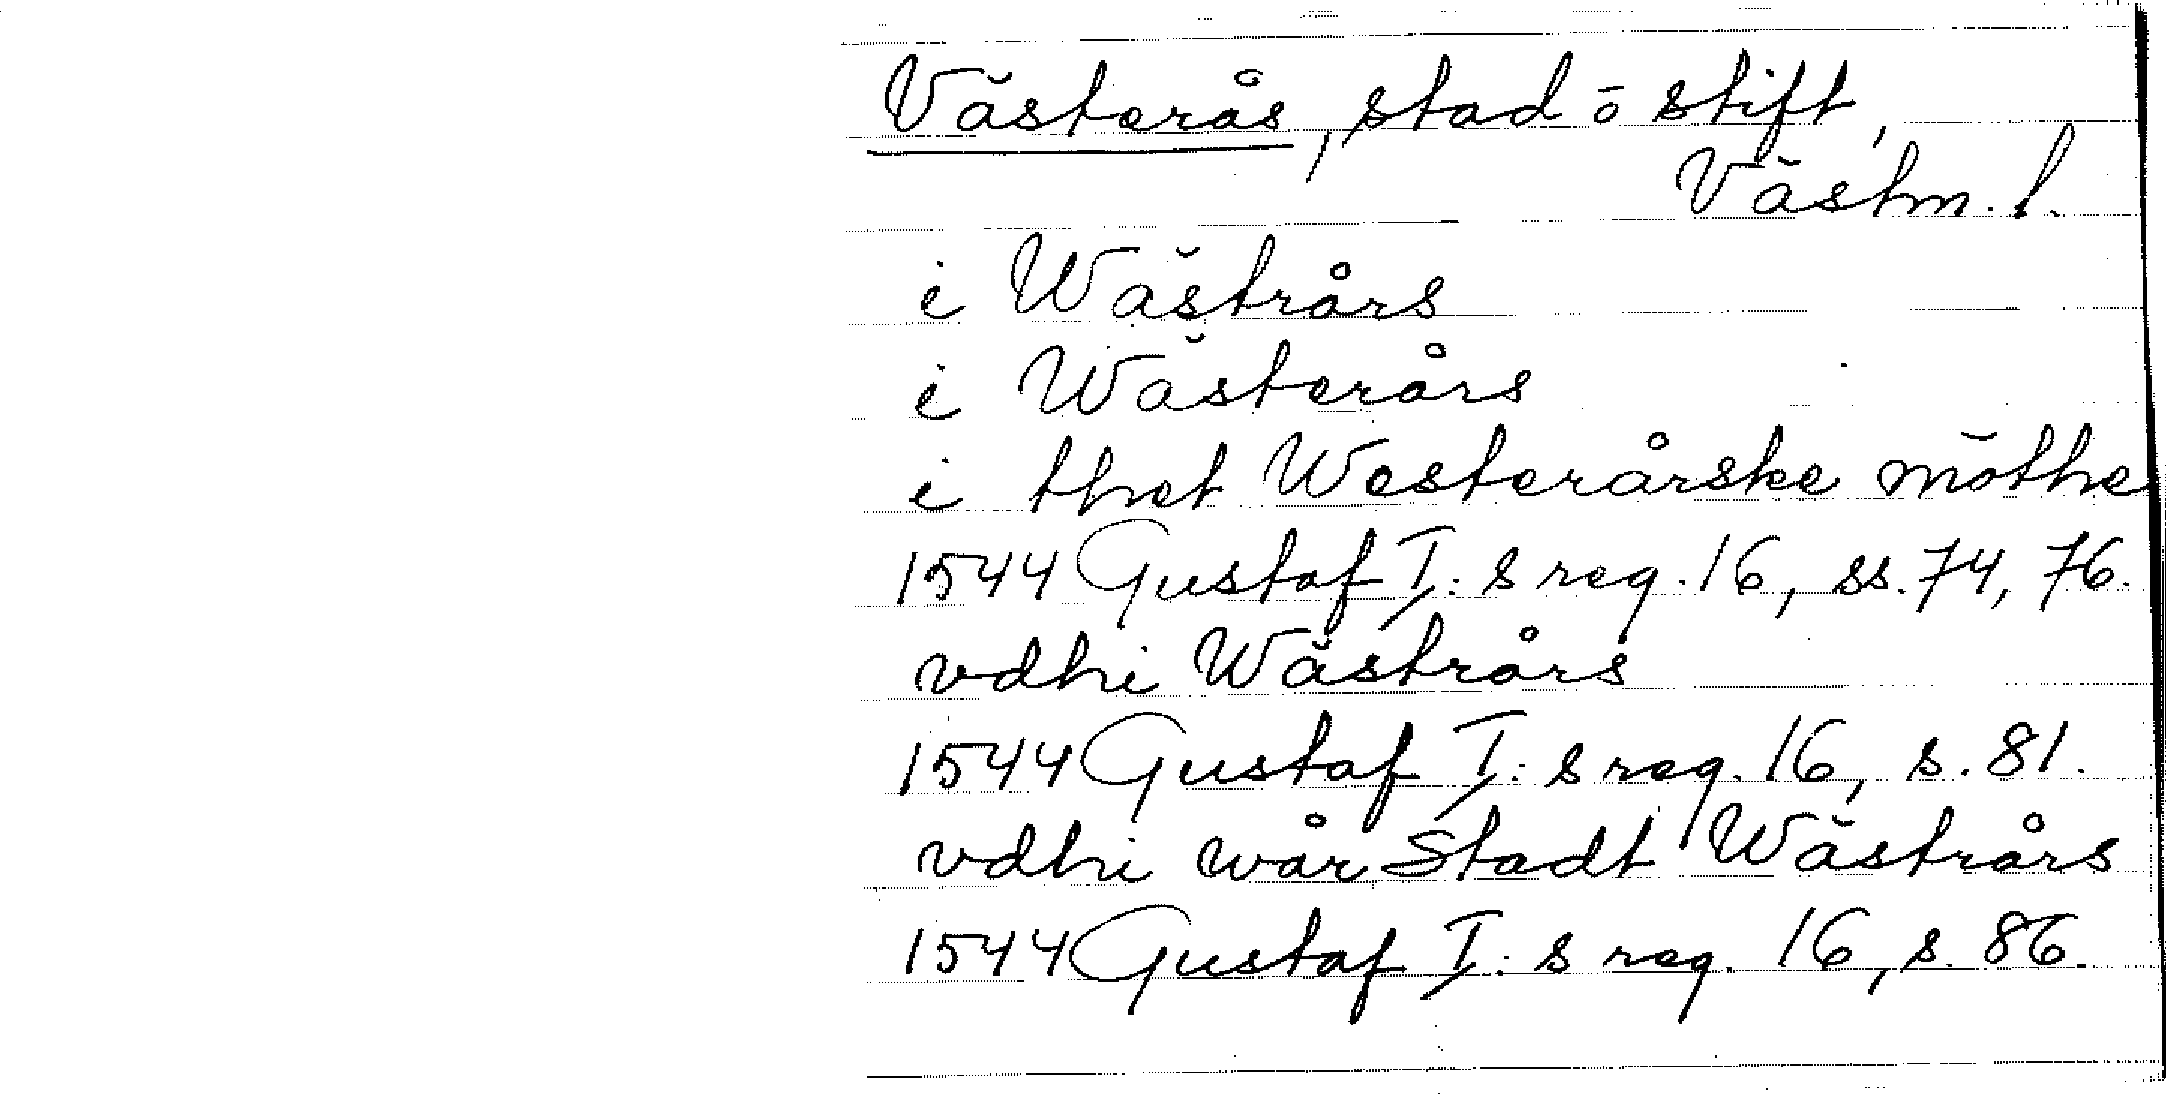 Västerås, stad ō stift,
Västm. l.
i Wästrårs
i Wästerårs
i thet Westerårske möthe
1544 Gustaf I:s reg. 16, ss. 74, 76.
vdhi Wästrårs
1544 Gustaf I:s reg. 16, s. 81.
vdhi wår Stadt Wästrårs
1544 Gustaf I:s reg. 16, s. 86.